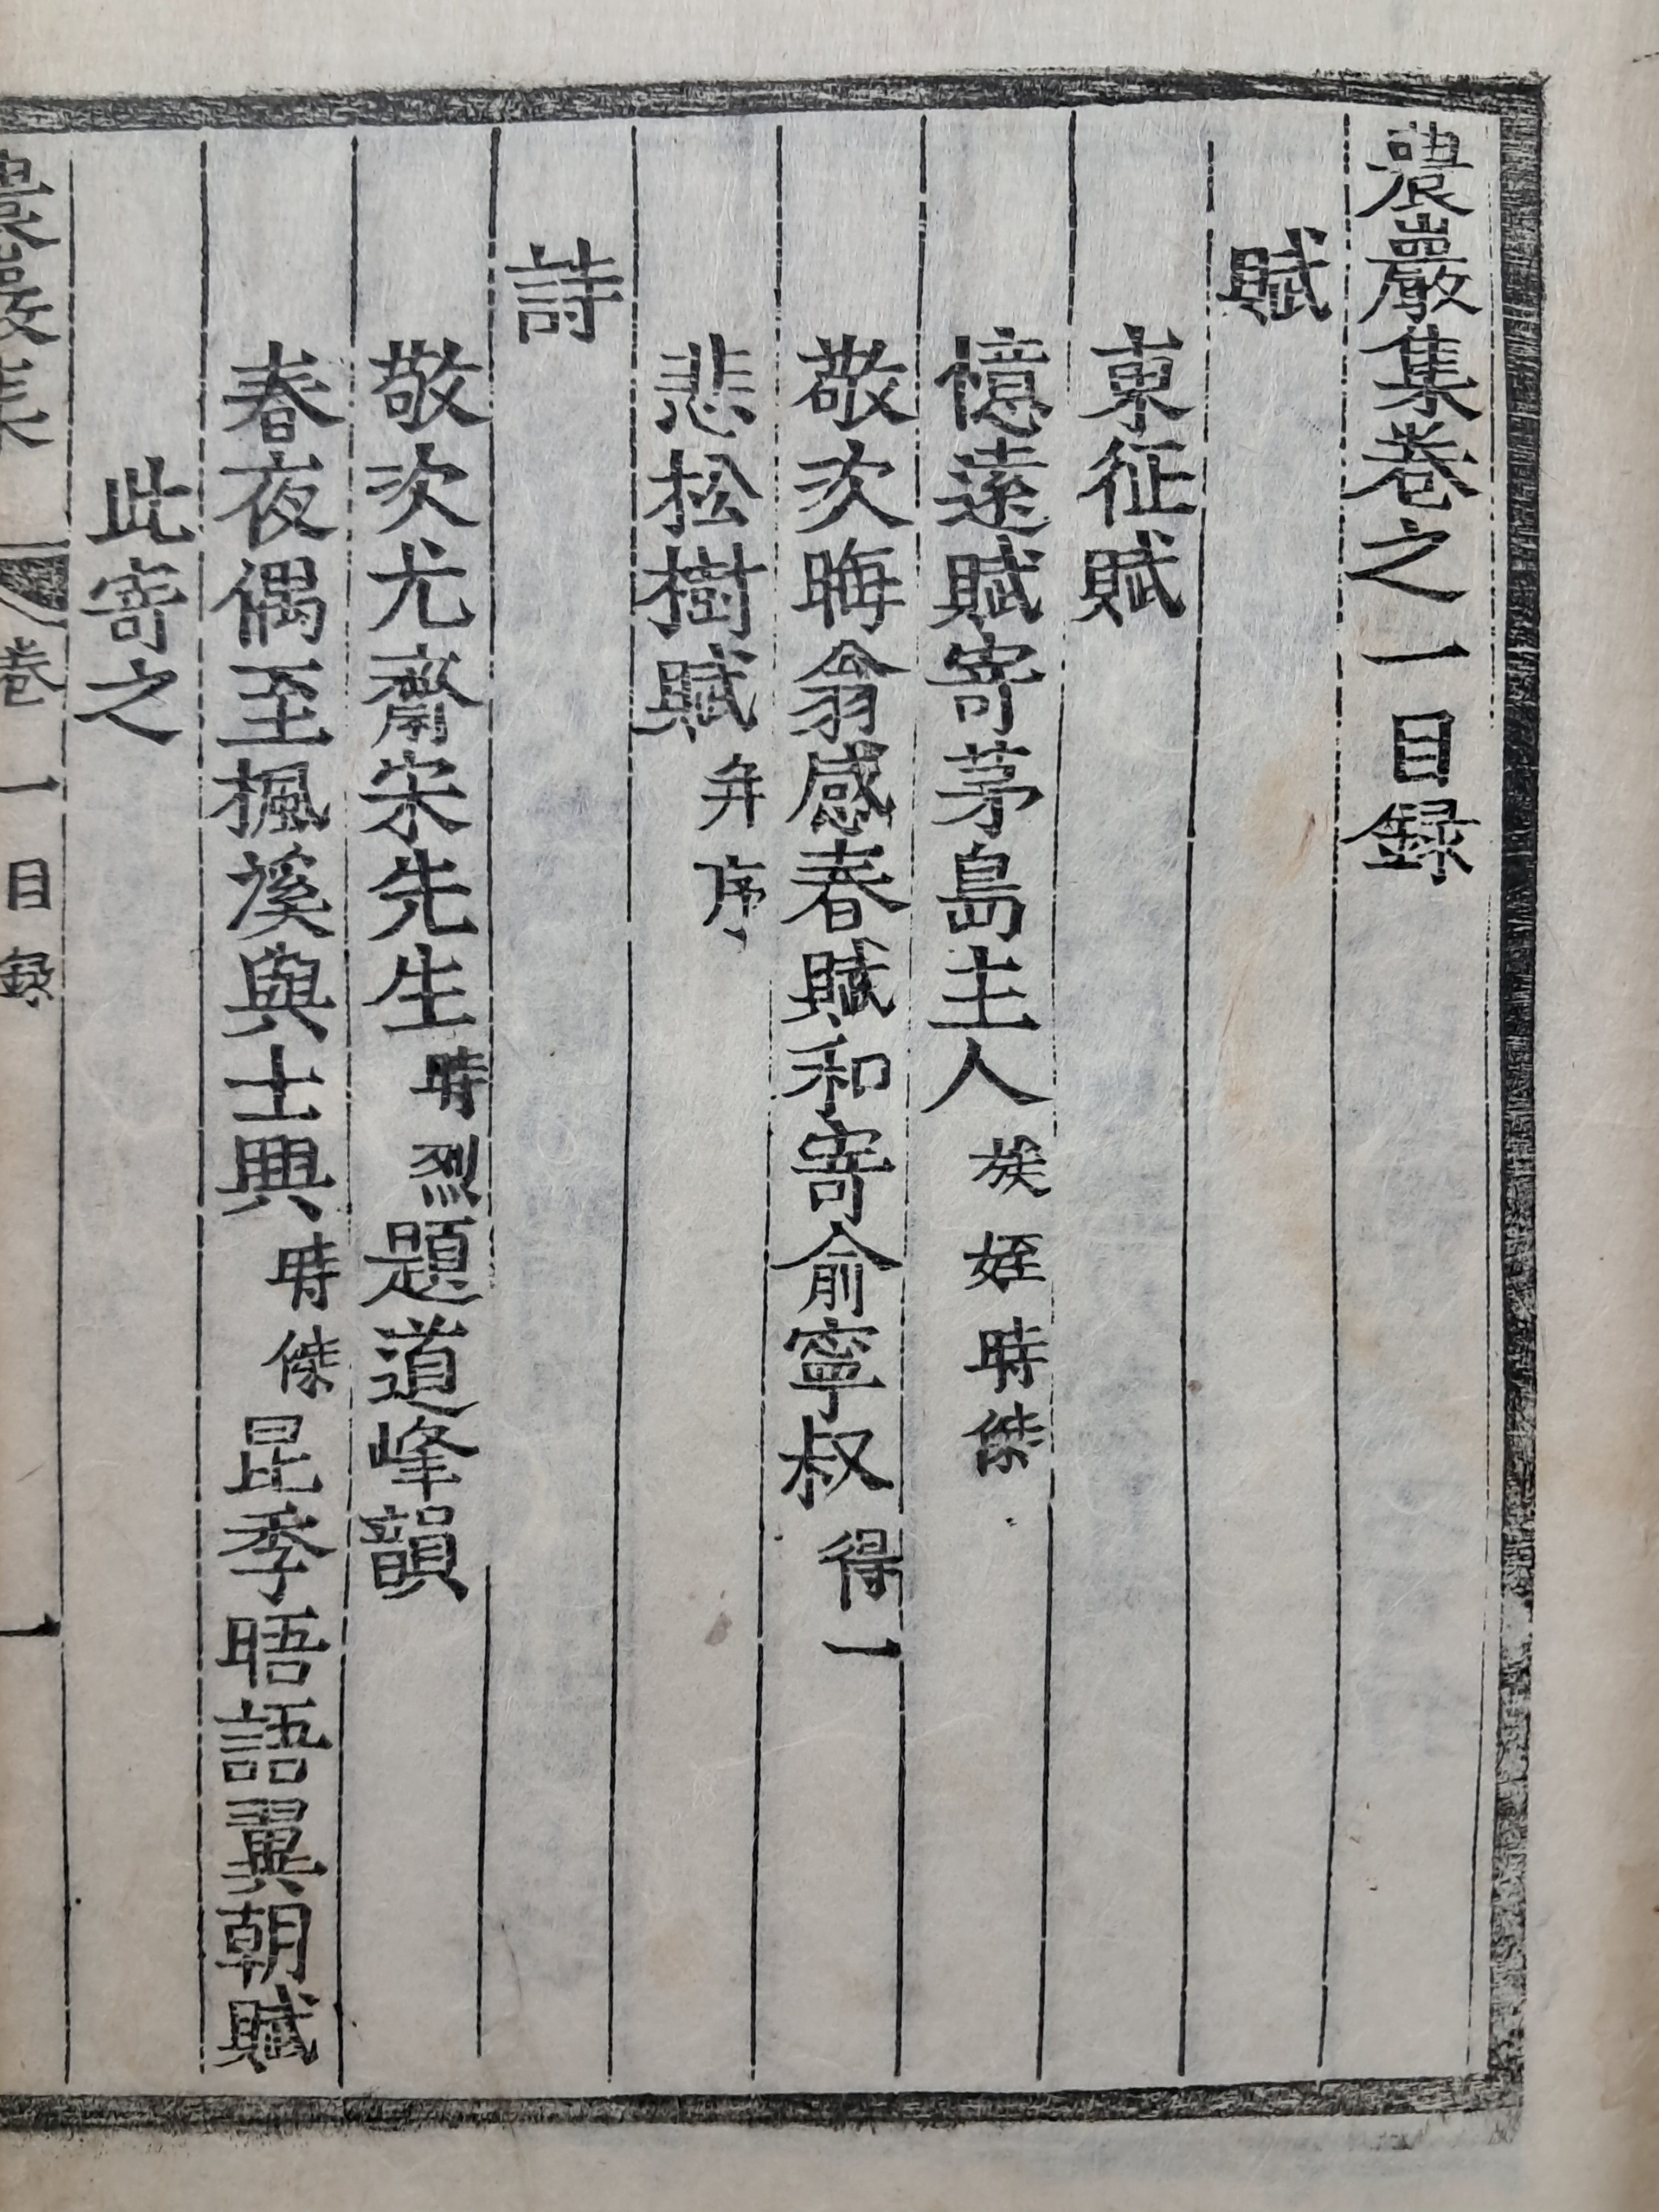 農巖集卷之一目錄
賦
東征賦
憶遠賦寄茅島主人 族姪時傑
敬次晦翁感春賦和寄兪寧叔 得一
悲松樹賦 幷序
詩
敬次尤齋宋先生 時烈 題道峰韻
春夜偶至楓溪與士興 時傑 昆季晤語翼朝賦
此寄之
農巖集 卷一目錄 一